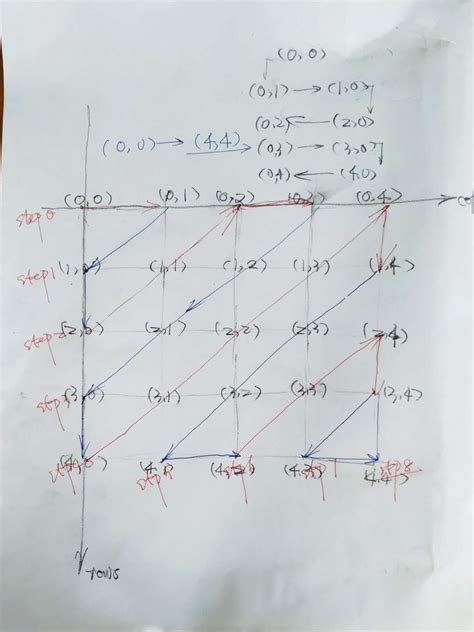 (0,0)
(0,1) → (1,0)
(0,2) ← (2,0)
(0,0) → (4,4) (0,3) → (3,0)
(0,4) ← (4,0)
(0,0) (0,1) (0,2) (0,3) (0,4)
step0
step1 (1,0) (1,1) (1,2) (1,3) (1,4)
step2 (2,0) (2,1) (2,2) (2,3) (2,4)
step3 (3,0) (3,1) (3,2) (3,3) (3,4)
(4,0) (4,1) (4,2) (4,3) step8
(4,4)
rows